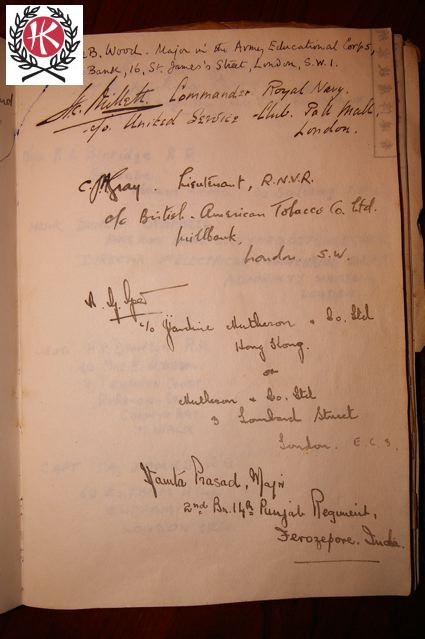 HK
B. Wood. Major in the Army Educational Corps,
Bank, 16, St. James's Street, London, S.W.1.
Millett. Commander Royal Navy.
c/o United Service Club. Pall Mall,
London.
Gray Lieutenant, R.N.V.R.
c/o British-American Tobacco Co. Ltd.
Millbank,
London S.W.
c/o Jardine Matheson & Co. Ltd
Hong Kong.
or
Matheson & Co. Ltd
3 Lombard Street
London. E.C.3.
Prasad, Major
2nd Bn. 14th Punjab Regiment,
Ferozepore. India.